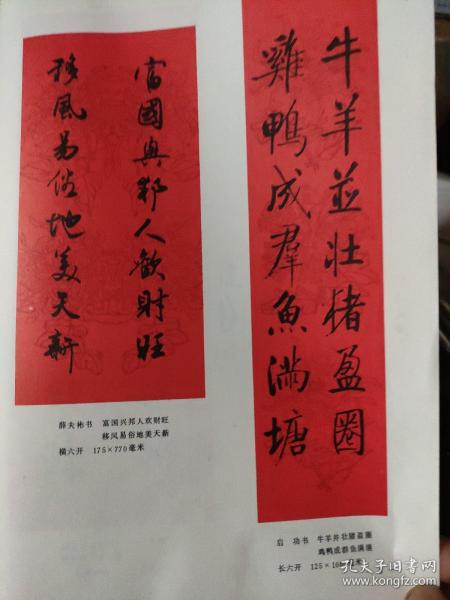 牛羊並壮猪盈圈
雞鴨成羣魚满塘
富國興邦人歡財旺
移風易俗地美天新
薛夫彬书 富国兴邦人欢财旺
移风易俗地美天新
横六开 175×770毫米
启 功书 牛羊并壮猪盈圈
鸡鸭成群鱼满塘
长六开 125×
孔夫子旧书网